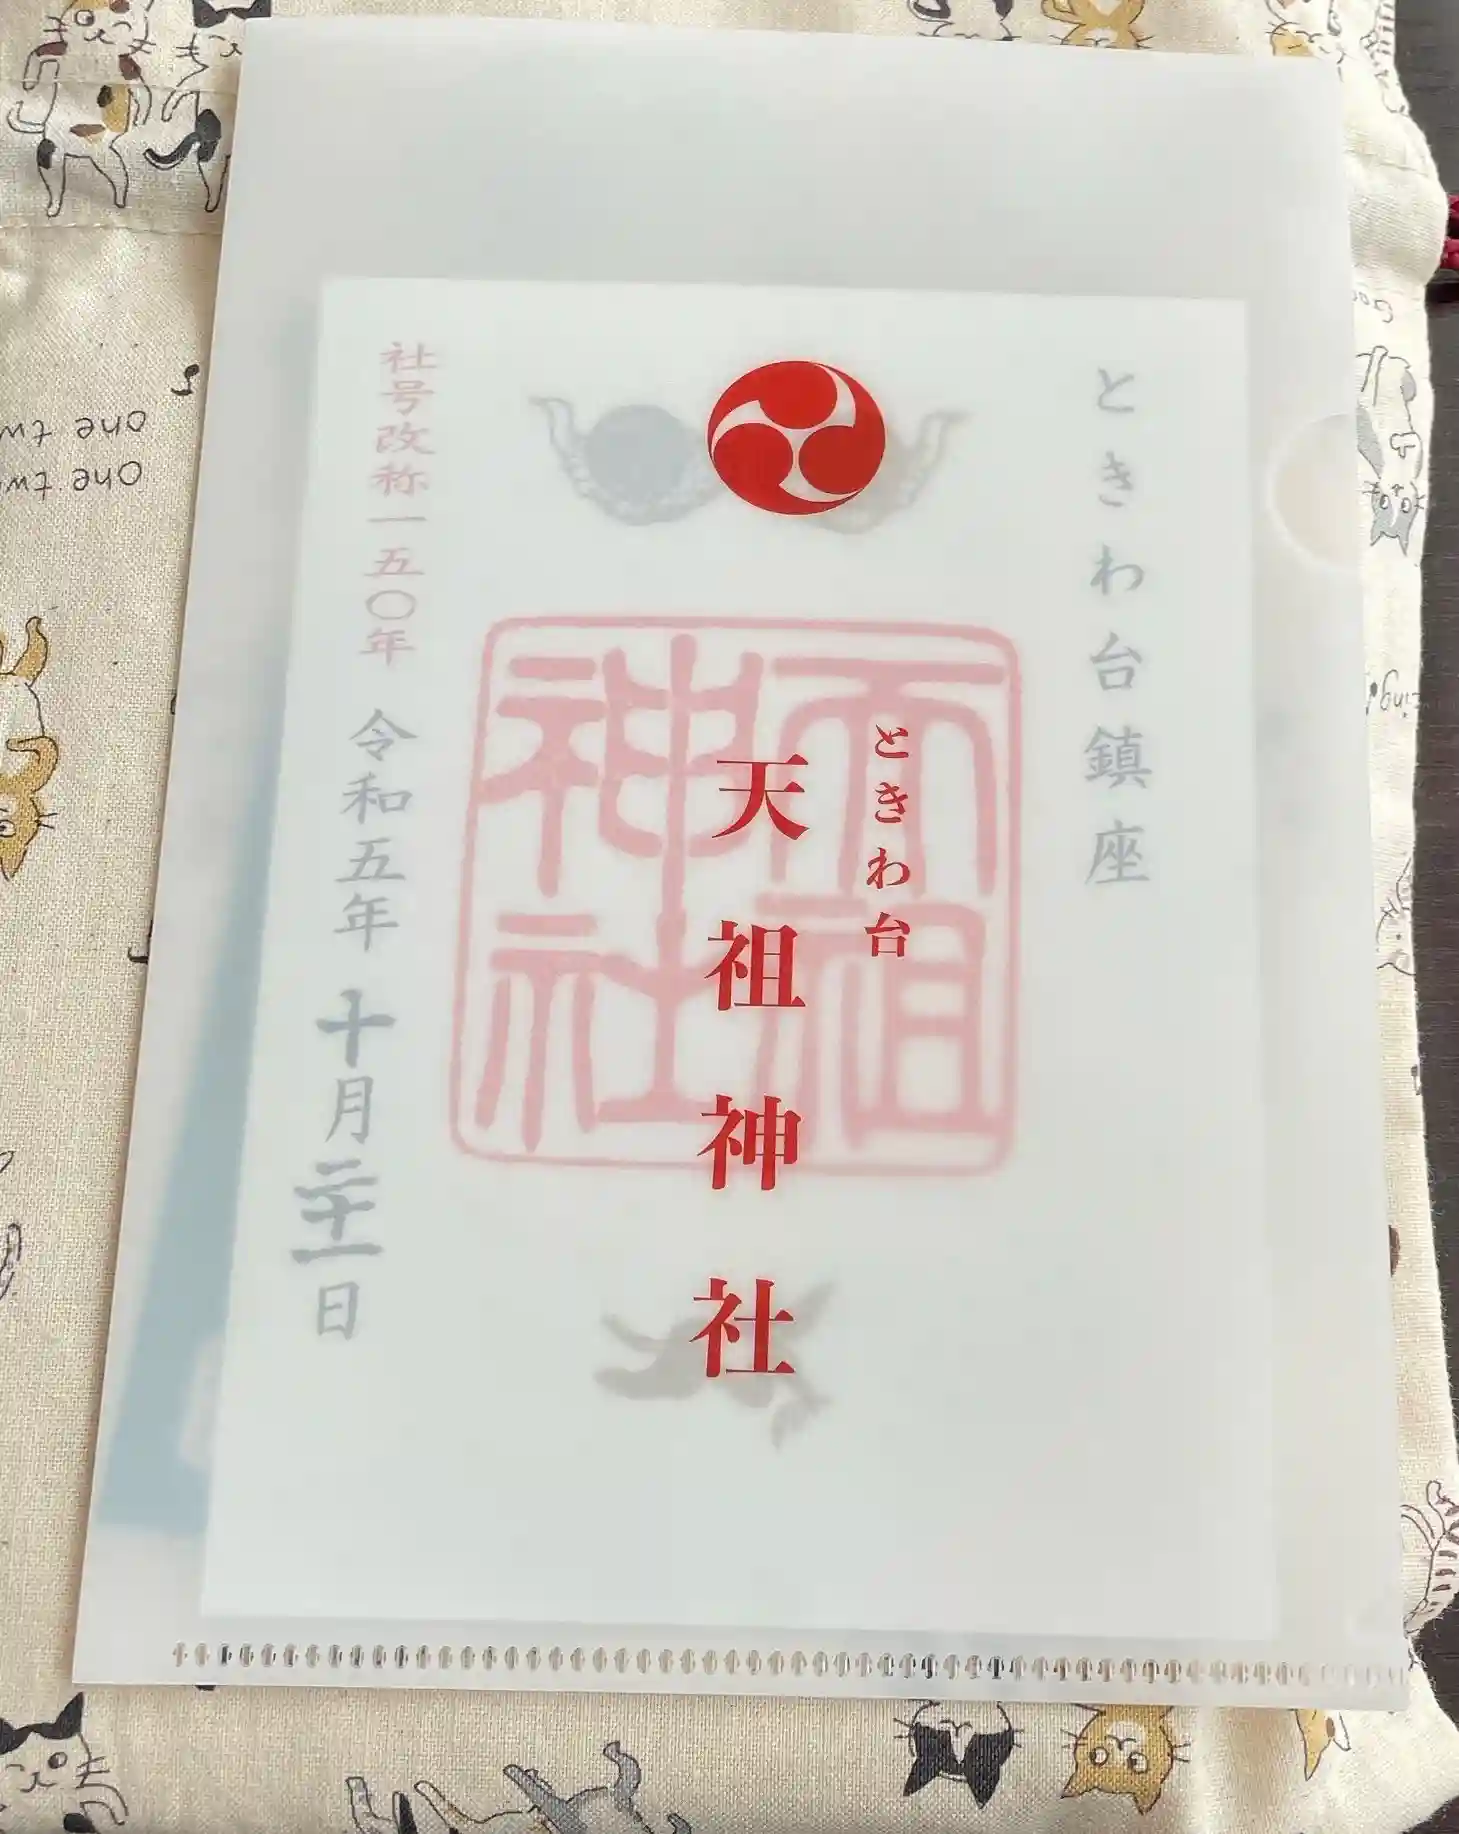 ときわ台鎮座
ときわ台
天祖神社
天祖神社
社号改称一五〇年 令和五年 十月二十一日
one tw
one tw